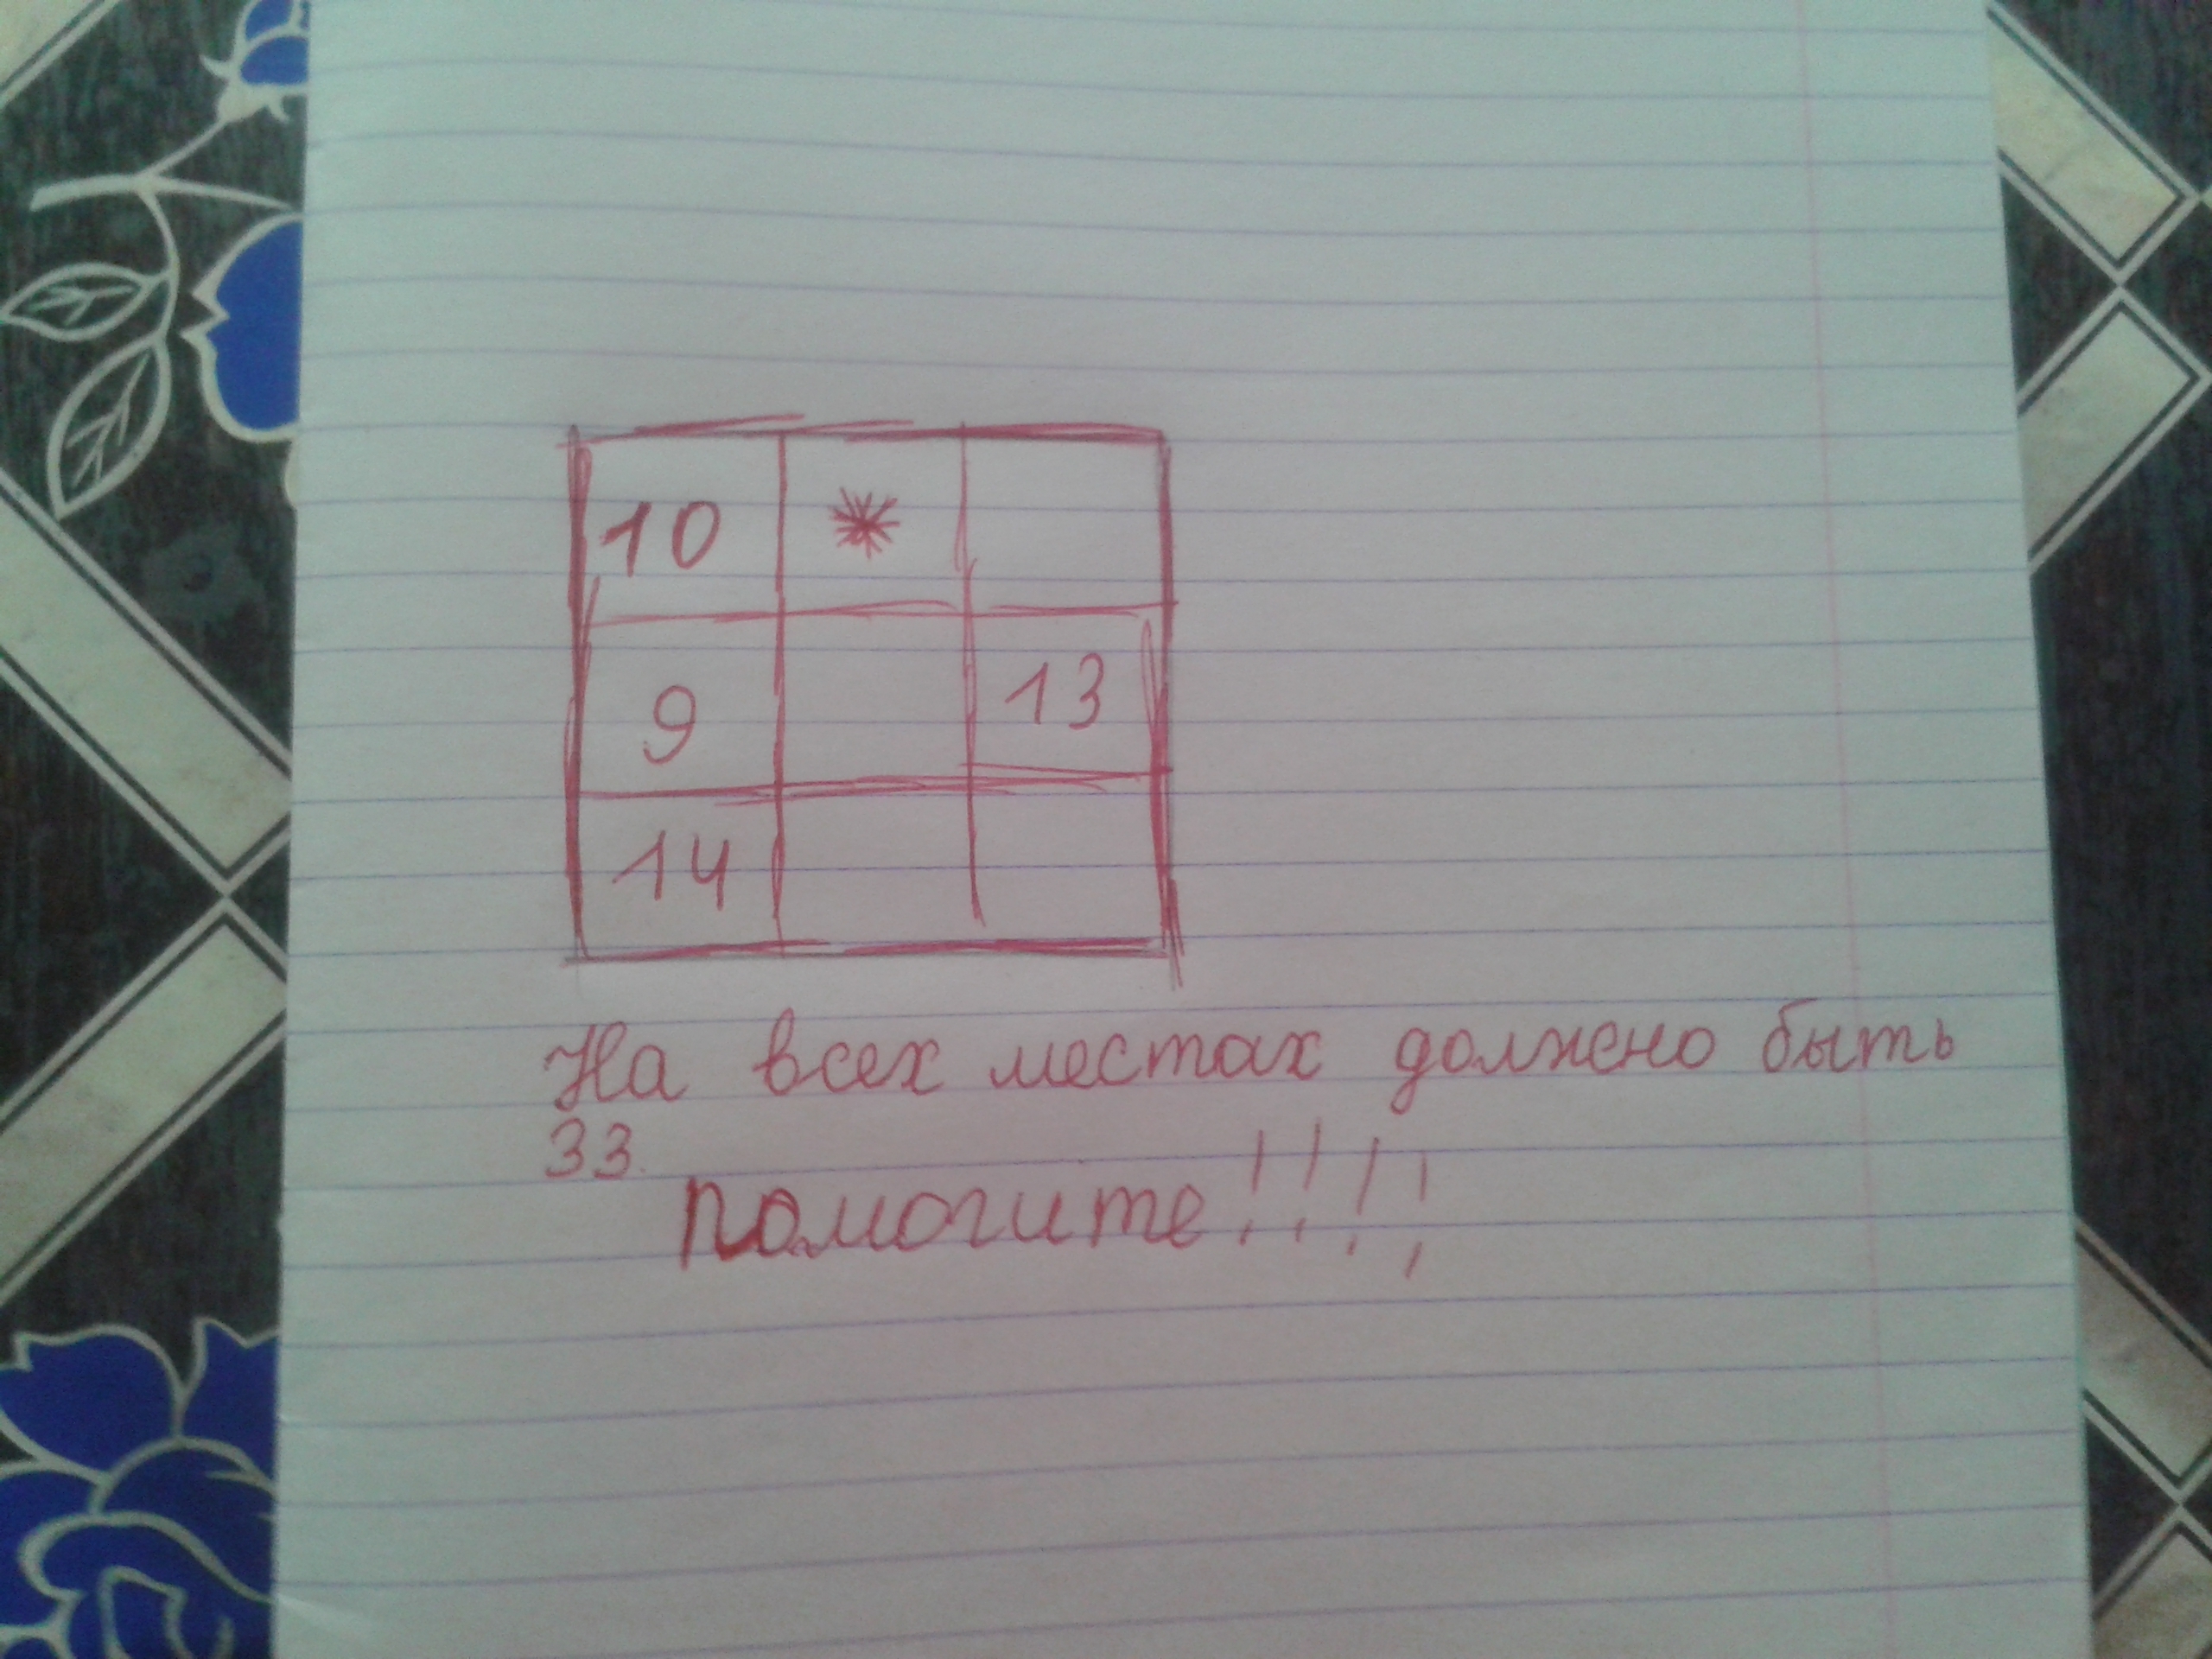 10 *
9 13
14
На всех местах должено быть
33.
помогите!!!!